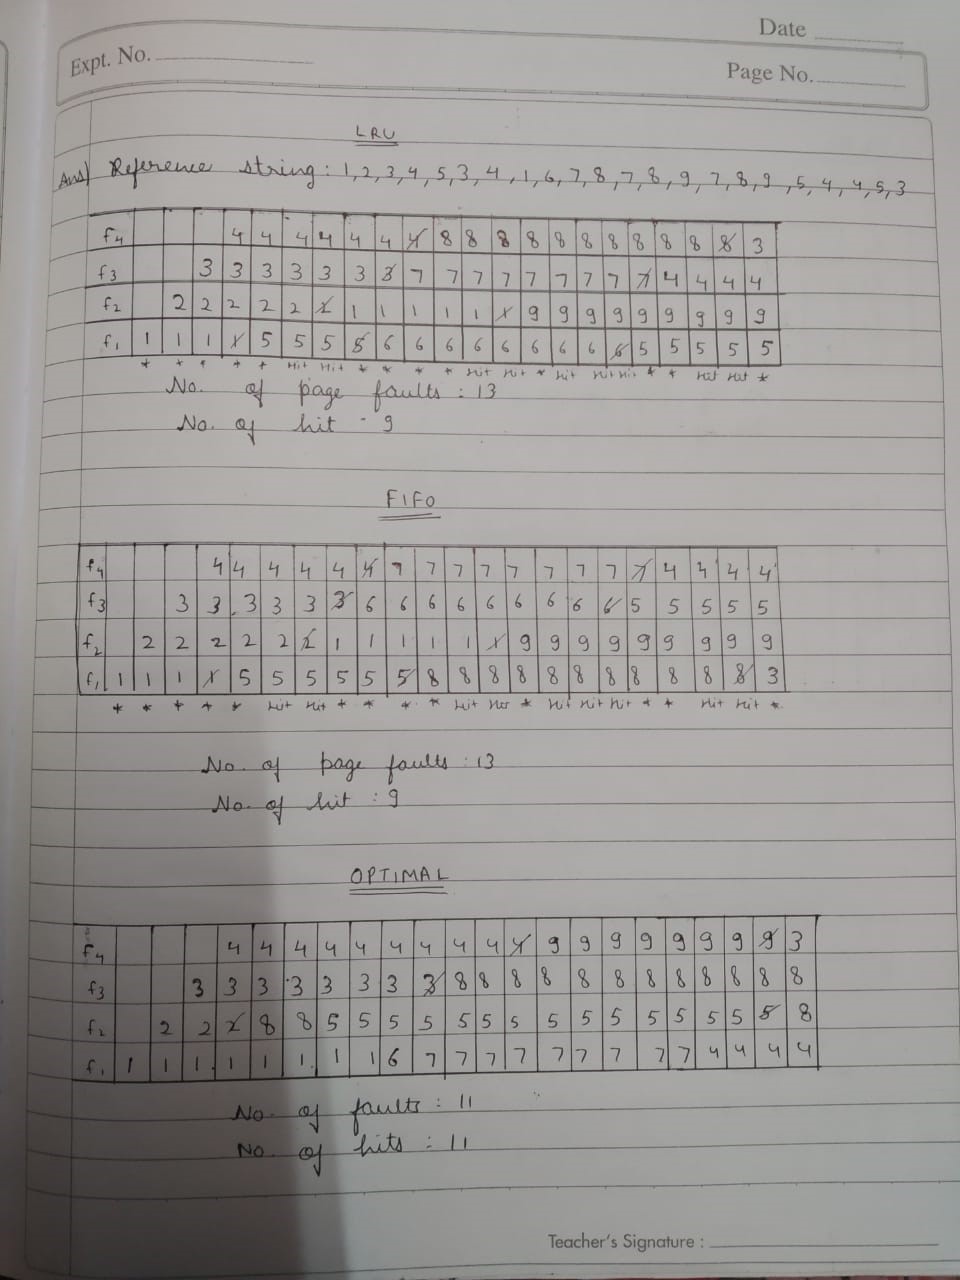 Date
Expt. No.
Page No.
LRU
Ans) Reference string: 1,2,3,4,5,3,4,1,6,7,8,7,8,9,7,8,9,5,4,4,5,3
f4 4 4 4 4 4 4 4 8 8 8 8 8 8 8 8 8 8 8 3
f3 3 3 3 3 3 3 3 7 7 7 7 7 7 7 7 7 4 4 4 4
f2 2 2 2 2 2 2 1 1 1 1 1 1 9 9 9 9 9 9 9 9 9
f1 1 1 1 1 5 5 5 5 6 6 6 6 6 6 6 6 6 5 5 5 5 5
* * * * * Hit Hit * * * * Hit Hit * Hit Hit Hit * * Hit Hit *
No. of page faults : 13
No. of hit - 9
FIFO
f4 4 4 4 4 4 4 7 7 7 7 7 7 7 7 7 4 4 4 4
f3 3 3 3 3 3 3 6 6 6 6 6 6 6 6 6 5 5 5 5 5
f2 2 2 2 2 2 2 1 1 1 1 1 1 9 9 9 9 9 9 9 9 9
f1 1 1 1 1 5 5 5 5 5 5 8 8 8 8 8 8 8 8 8 8 8 3
* * * * * Hit Hit * * * * Hit Hit * Hit Hit Hit * * Hit Hit *
No. of page faults : 13
No. of hit : 9
OPTIMAL
f4 4 4 4 4 4 4 4 4 4 4 9 9 9 9 9 9 9 9 3
f3 3 3 3 3 3 3 3 3 8 8 8 8 8 8 8 8 8 8 8 8
f2 2 2 2 8 8 5 5 5 5 5 5 5 5 5 5 5 5 5 5 5 8
f1 1 1 1 1 1 1 1 1 6 7 7 7 7 7 7 7 7 7 4 4 4 4
No. of faults : 11
No. of hits : 11
Teacher's Signature :